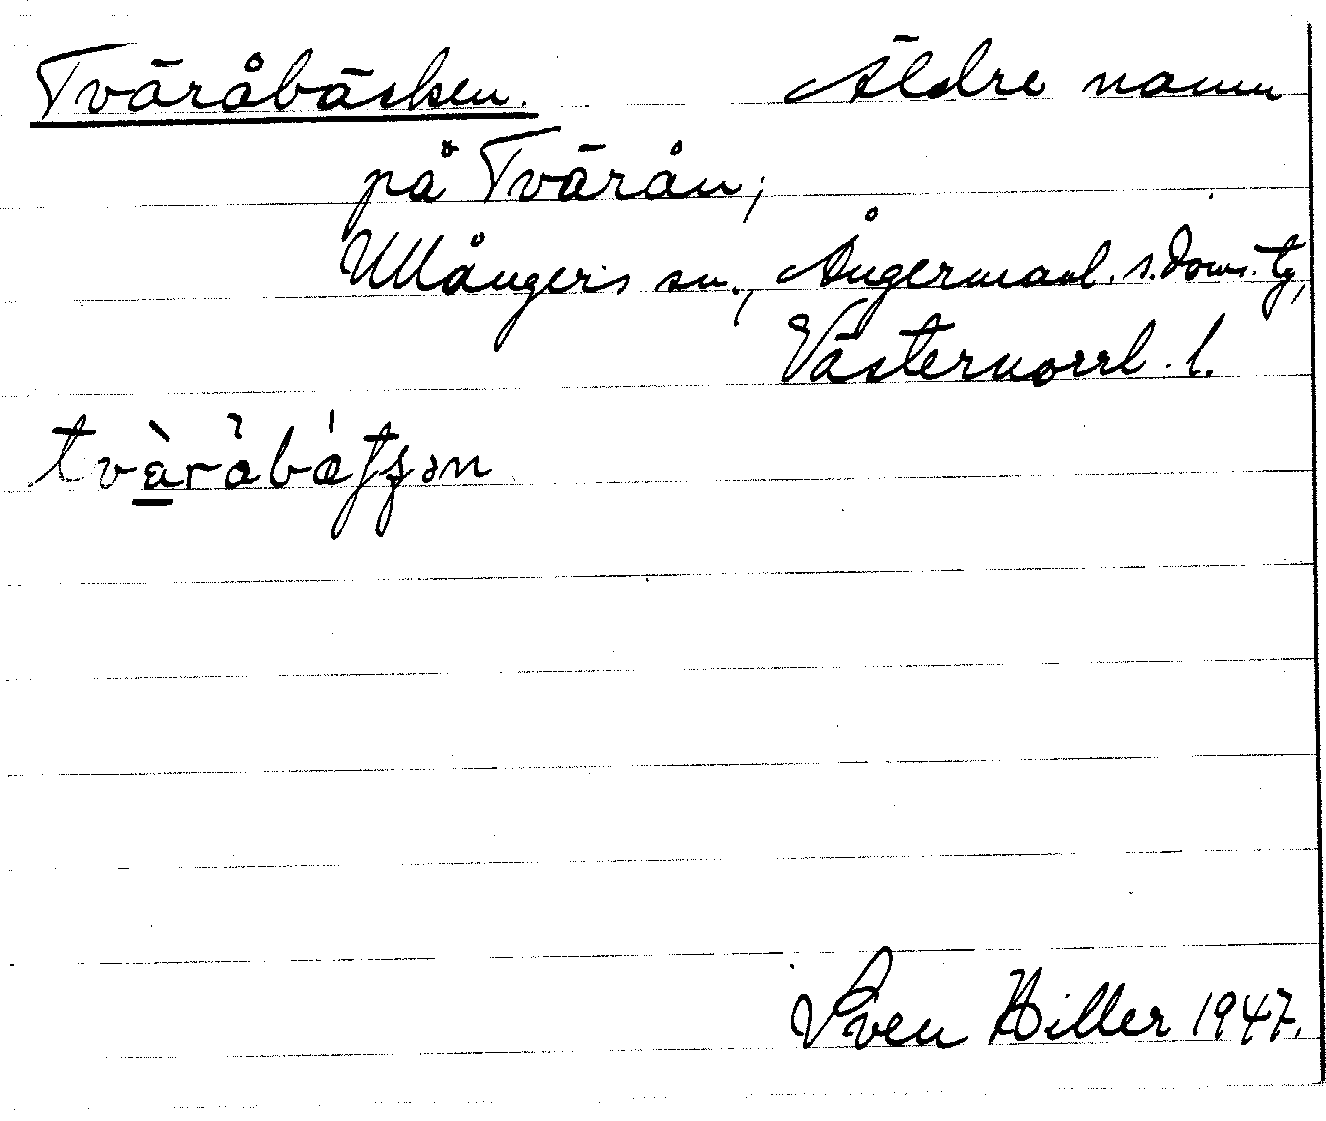 Tväråbäcken. Äldre namn
på Tvärån;
Ullångers sn., Ångermanl. s. doms. tg,
Västernorrl. l.
tvàråbátʃən
Sven Hiller 1947.